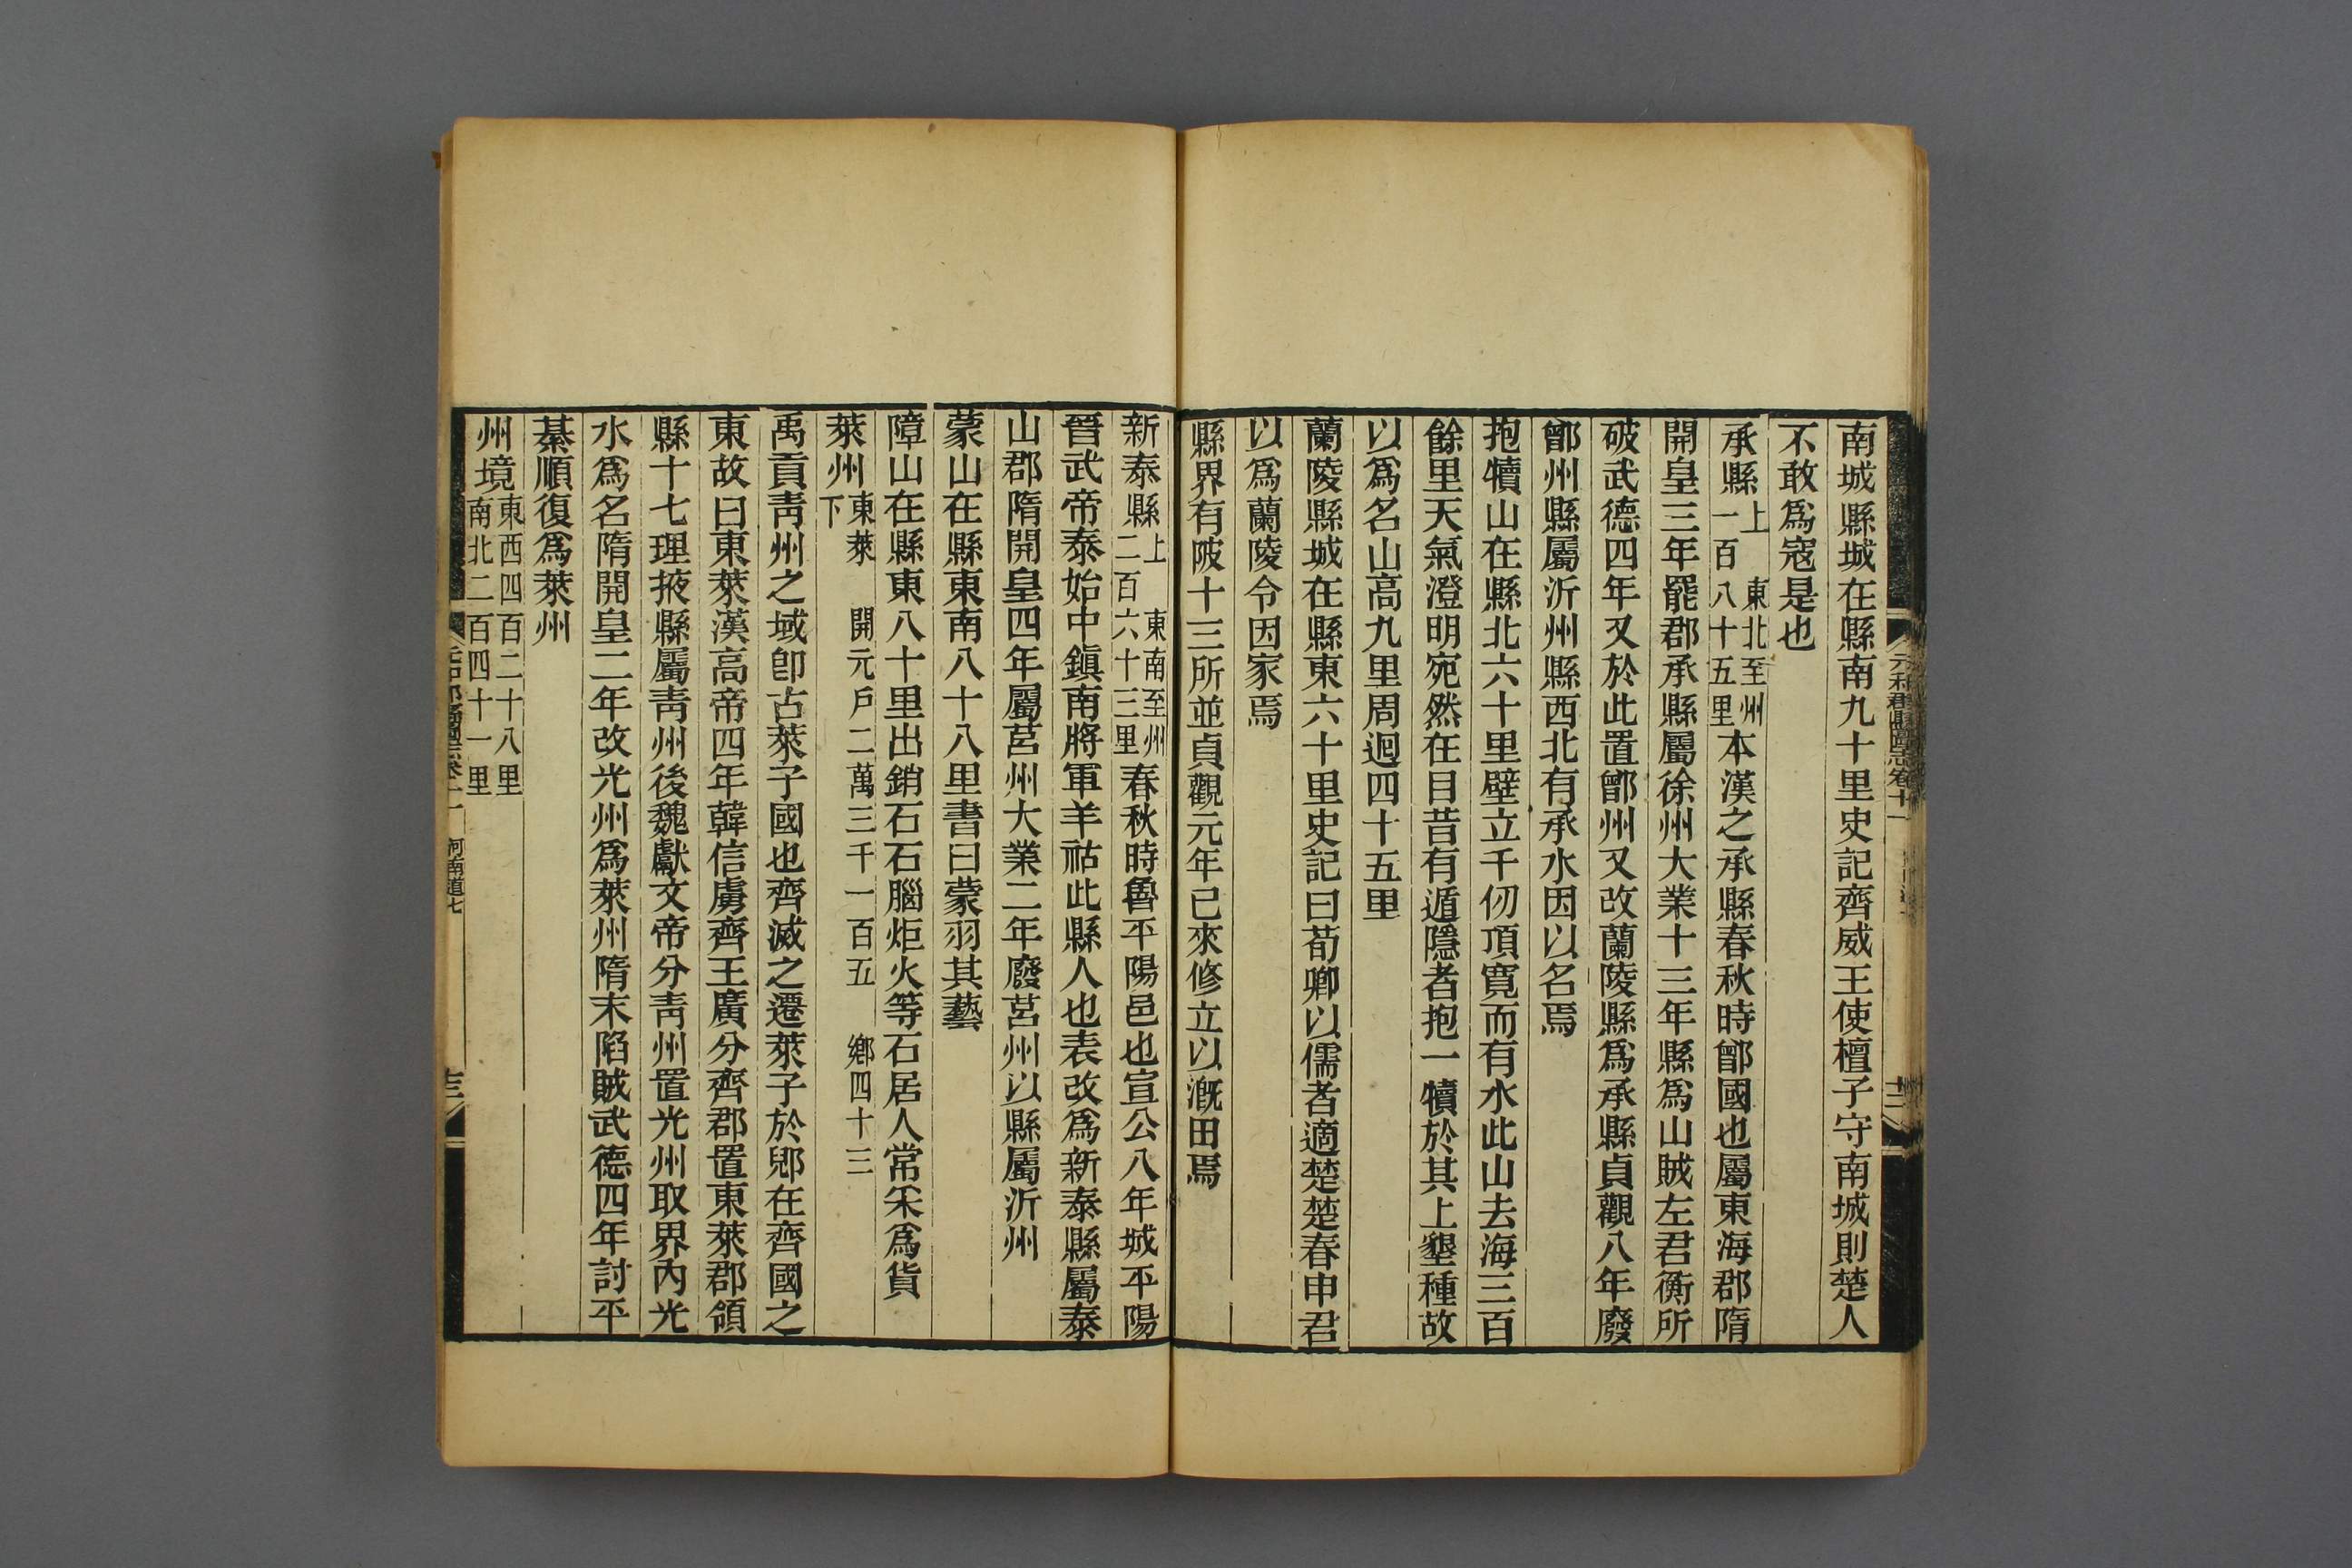 南城縣城在縣南九十里史記齊威王使檀子守南城則楚人
不敢爲寇是也
承縣上 東北至州一百八十五里本漢之承縣春秋時鄫國也屬東海郡隋
開皇三年罷郡承縣屬徐州大業十三年縣爲山賊左君衡所
破武德四年又於此置鄫州又改蘭陵縣爲承縣貞觀八年廢
鄫州縣屬沂州縣西北有承水因以名焉
抱犢山在縣北六十里壁立千仞頂寬而有水此山去海三百
餘里天氣澄明宛然在目昔有遁隱者抱一犢於其上墾種故
以爲名山高九里周迴四十五里
蘭陵縣城在縣東六十里史記曰荀卿以儒者適楚楚春申君
以爲蘭陵令因家焉
縣界有陂十三所並貞觀元年已來修立以漑田焉
新泰縣上 東南至州二百六十三里春秋時魯平陽邑也宣公八年城平陽
晉武帝泰始中鎭南將軍羊祜此縣人也表改爲新泰縣屬泰
山郡隋開皇四年屬莒州大業二年廢莒州以縣屬沂州
蒙山在縣東南八十八里書曰蒙羽其藝
障山在縣東八十里出銷石石腦炬火等石居人常采爲貨
萊州東萊下 開元戶二萬三千一百五 鄉四十三
禹貢靑州之域卽古萊子國也齊滅之遷萊子於郳在齊國之
東故曰東萊漢高帝四年韓信虜齊王廣分齊郡置東萊郡領
縣十七理掖縣屬靑州後魏獻文帝分靑州置光州取界內光
水爲名隋開皇二年改光州爲萊州隋末陷賊武德四年討平
綦順復爲萊州
州境東西四百二十八里南北二百四十一里
元和郡縣圖志卷十一
十二
河南道七
十三